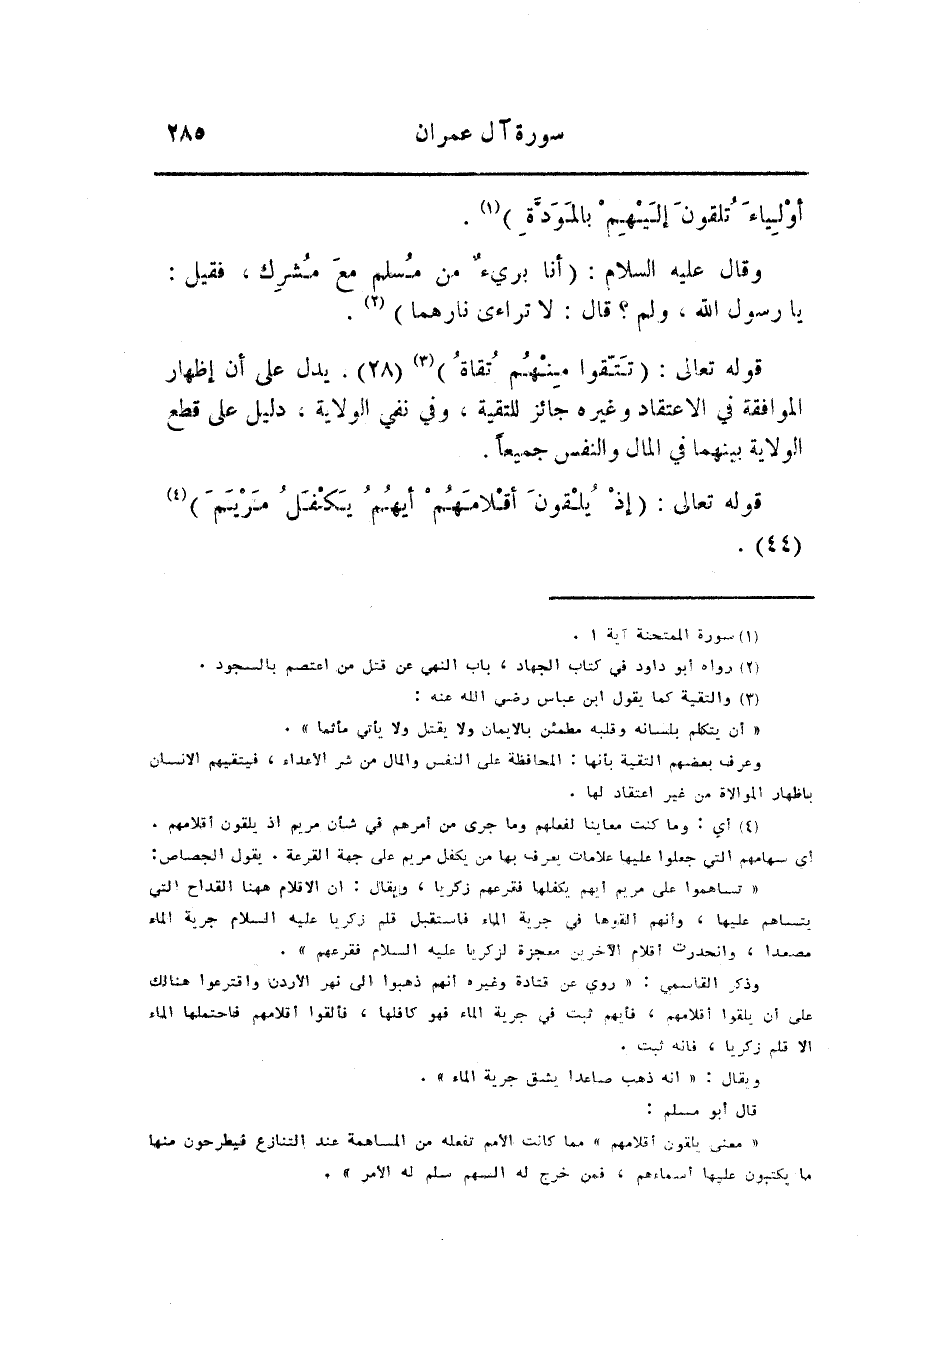 سورة آل عمران ٢٨٥
أوْلِياءَ تُلقونَ إلَيْهِمْ بالمَوَدَّةِ )(١) .
وقال عليه السلام : ( أنا بريءٌ من مُسلم معَ مُشرِك ، فقيل :
يا رسول الله ، ولم ؟ قال : لا تراءى نارهما ) (٢) .
قوله تعالى : ( تَتَّقوا مِنْهُم تُقاةُ )(٣) (٢٨) . يدل على أن إظهار
الموافقة في الاعتقاد وغيره جائز للتقية ، وفي نفي الولاية ، دليل على قطع
الولاية بينهما في المال والنفس جميعاً .
قوله تعالى : ( إذْ يُلْقونَ أقْلامَهُمْ أيهُمُ يَكْفَلُ مَرْيَمَ )(٤)
(٤٤) .
(١) سورة الممتحنة آية ١ .
(٢) رواه أبو داود في كتاب الجهاد ، باب النهي عن قتل من اعتصم بالسجود .
(٣) والتقية كما يقول ابن عباس رضي الله عنه :
« أن يتكلم بلسانه وقلبه مطمئن بالايمان ولا يقتل ولا يأتي مأثما » .
وعرف بعضهم التقية بأنها : المحافظة على النفس والمال من شر الأعداء ، فيتقيهم الانسان
باظهار الموالاة من غير اعتقاد لها .
(٤) أي : وما كنت معاينا لفعلهم وما جرى من أمرهم في شأن مريم اذ يلقون أقلامهم .
أي سهامهم التي جعلوا عليها علامات يعرف بها من يكفل مريم على جهة القرعة . يقول الجصاص:
« تساهموا على مريم أيهم يكفلها فقرعهم زكريا ، ويقال : ان الاقلام ههنا القداح التي
يتساهم عليها ، وأنهم ألقوها في جرية الماء فاستقبل قلم زكريا عليه السلام جرية الماء
مصعدا ، وانحدرت أقلام الآخرين معجزة لزكريا عليه السلام فقرعهم » .
وذكر القاسمي : « روي عن قتادة وغيره أنهم ذهبوا الى نهر الأردن واقترعوا هنالك
على أن يلقوا أقلامهم ، فأيهم ثبت في جرية الماء فهو كافلها ، فألقوا أقلامهم فاحتملها الماء
الا قلم زكريا ، فانه ثبت .
ويقال : « انه ذهب صاعدا يشق جرية الماء » .
قال أبو مسلم :
« معنى يلقون أقلامهم » مما كانت الأمم تفعله من المساهمة عند التنازع فيطرحون منها
ما يكتبون عليها أسماءهم ، فمن خرج له السهم سلم له الأمر » .